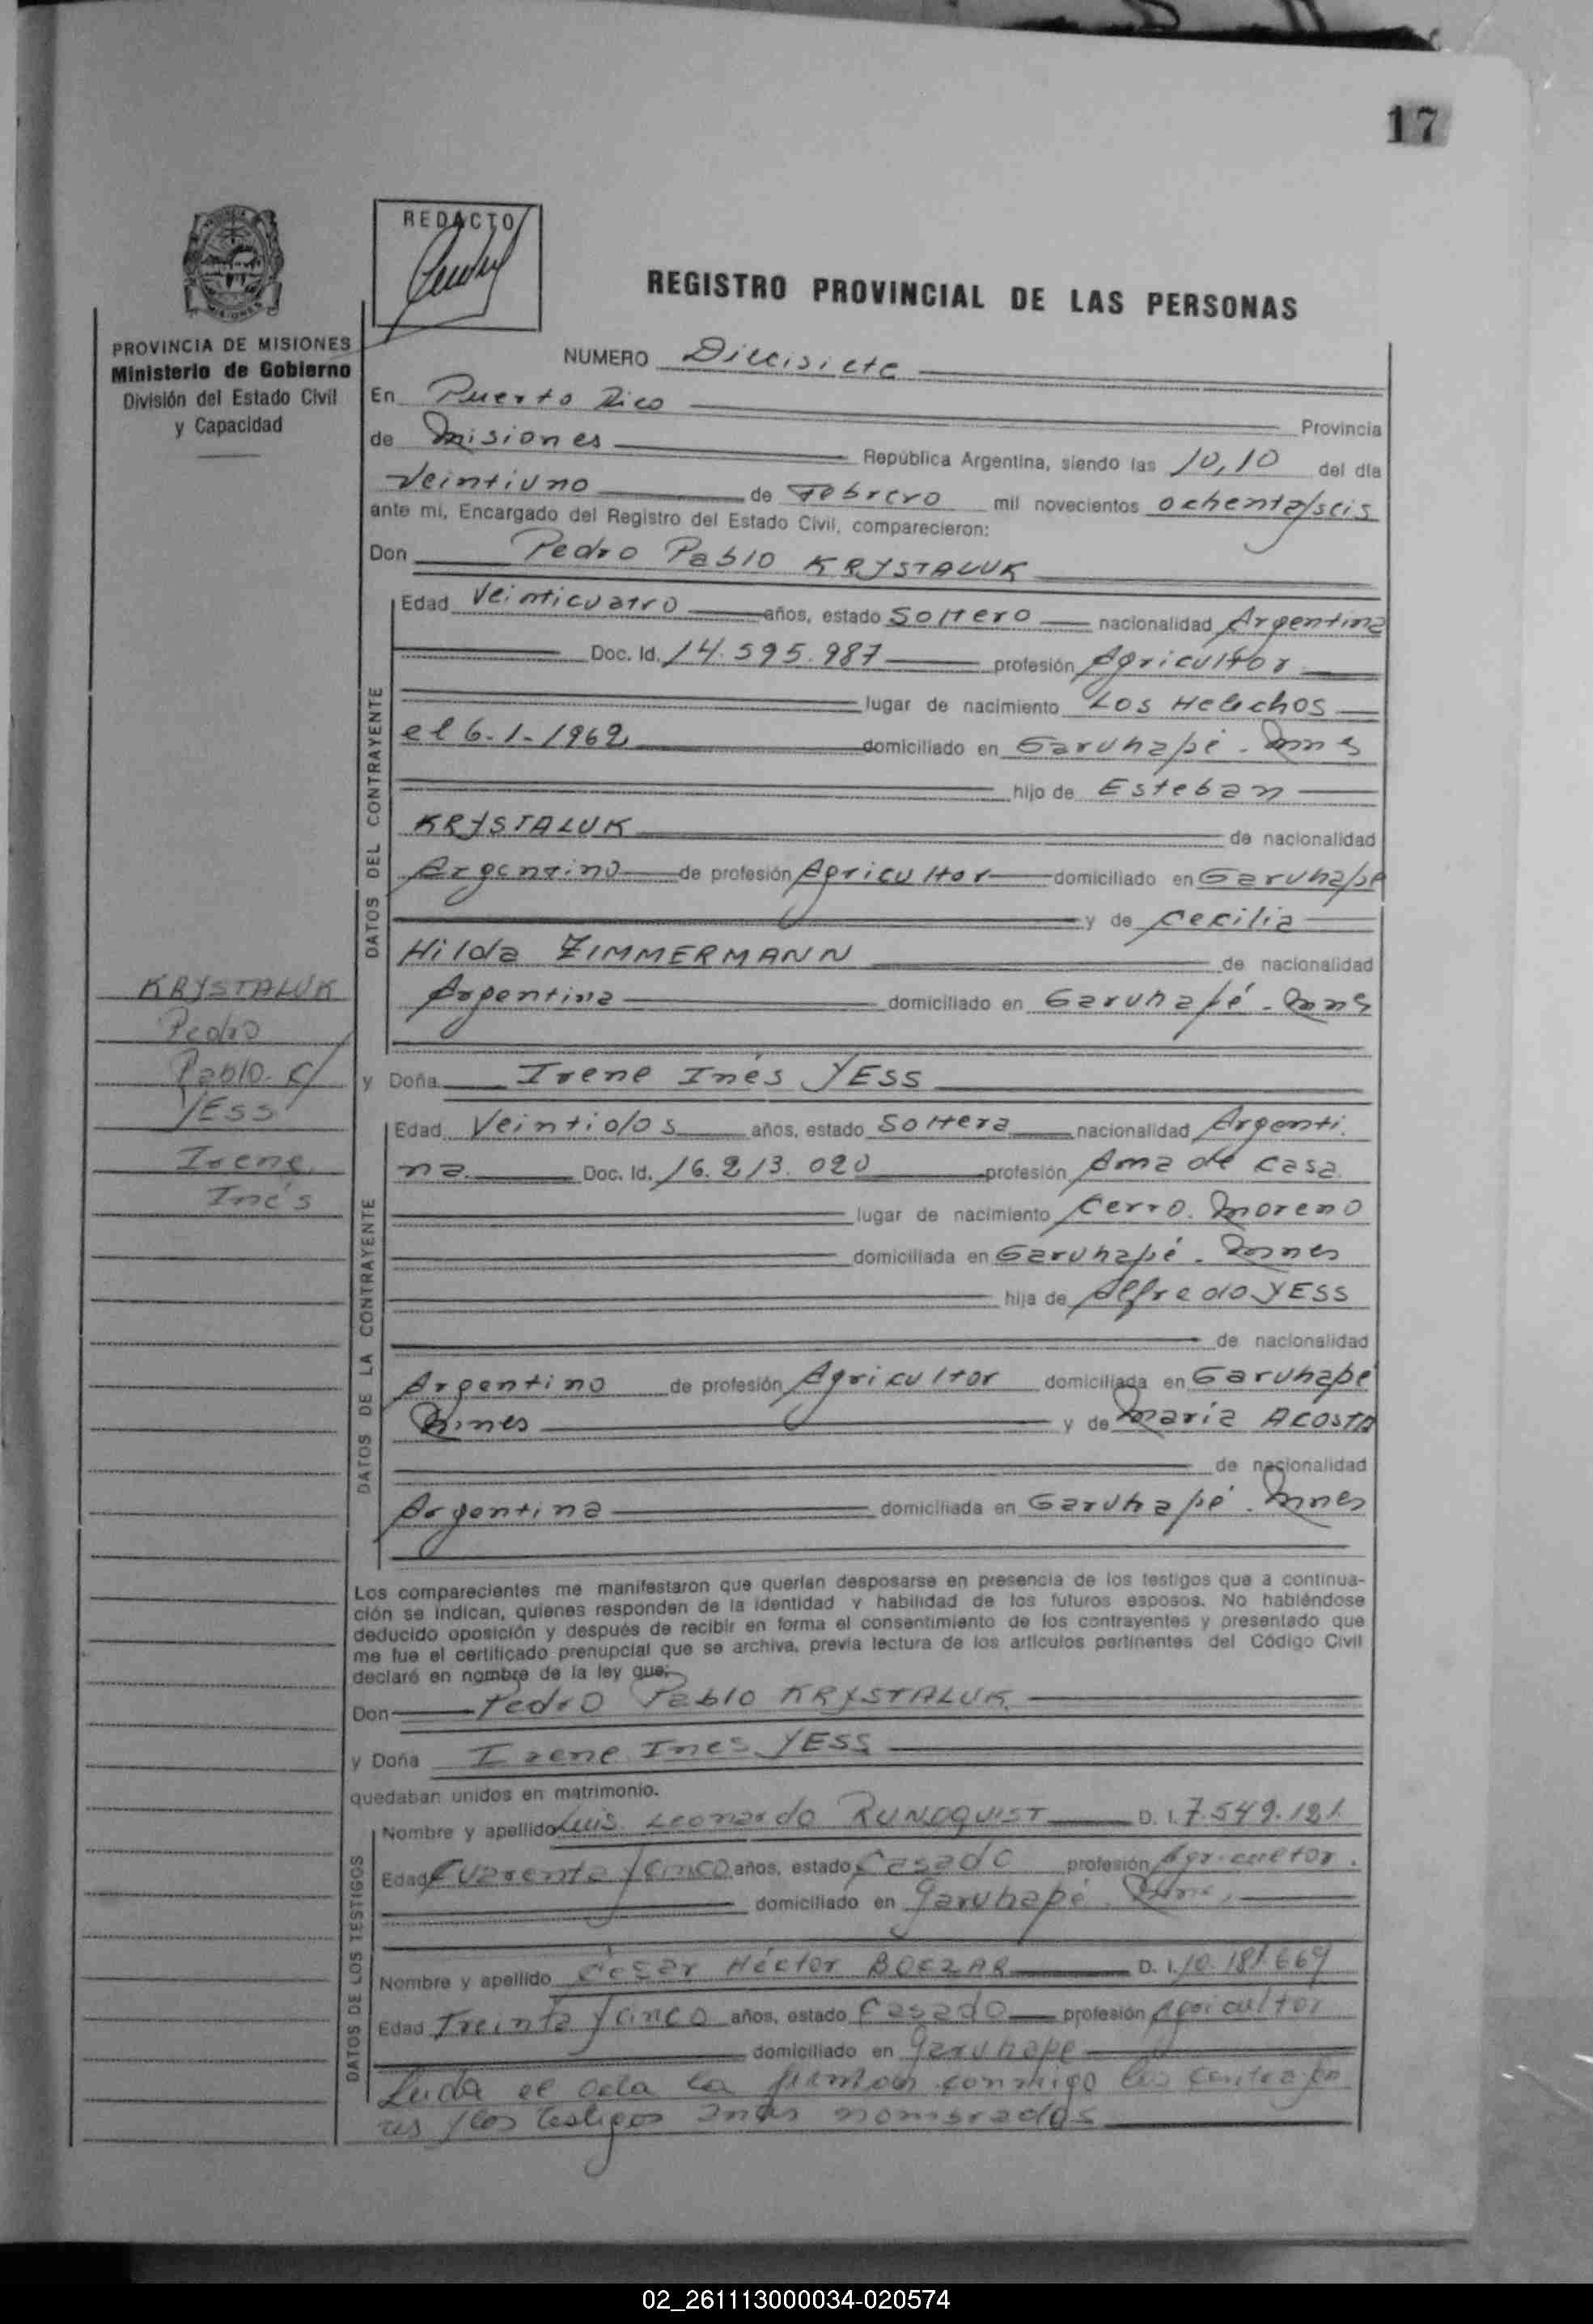 17
REDACTO
REGISTRO PROVINCIAL DE LAS PERSONAS
PROVINCIA DE MISIONES
Ministerio de Gobierno
División del Estado Civil
y Capacidad
NUMERO Diecisiete
En Puerto Rico Provincia
de Misiones República Argentina, siendo las 10,10 del día
Veintiuno de Febrero mil novecientos ochenta/seis
ante mí, Encargado del Registro del Estado Civil, comparecieron:
Don Pedro Pablo KRYSTALUK
DATOS DEL CONTRAYENTE
Edad Veinticuatro años, estado Soltero nacionalidad Argentina
Doc. Id. 14.595.987 profesión Agricultor
lugar de nacimiento Los Helechos
el 6-1-1962 domiciliado en Garuhapé - Mnes
hijo de Esteban
KRYSTALUK de nacionalidad
Argentino de profesión Agricultor domiciliado en Garuhapé
y de Cecilia
Hilda ZIMMERMANN de nacionalidad
Argentina domiciliado en Garuhapé - Mnes
KRYSTALUK
Pedro
Pablo c/
YESS
Irene
Inés
y Doña Irene Inés YESS
DATOS DE LA CONTRAYENTE
Edad Veintidós años, estado Soltera nacionalidad Argenti.
na Doc. Id. 16.213.020 profesión Ama de casa
lugar de nacimiento Cerro. Moreno
domiciliada en Garuhapé - Mnes
hija de Alfredo YESS
de nacionalidad
Argentino de profesión Agricultor domiciliada en Garuhapé
Mnes y de María ACOSTA
de nacionalidad
Argentina domiciliada en Garuhapé - Mnes
Los comparecientes me manifestaron que querían desposarse en presencia de los testigos que a continua-
ción se indican, quienes responden de la identidad y habilidad de los futuros esposos. No habiéndose
deducido oposición y después de recibir en forma el consentimiento de los contrayentes y presentado que
me fue el certificado prenupcial que se archiva, previa lectura de los artículos pertinentes del Código Civil
declaré en nombre de la ley que:
Don Pedro Pablo KRYSTALUK
y Doña Irene Ines YESS
quedaban unidos en matrimonio.
DATOS DE LOS TESTIGOS
Nombre y apellido Luis Leonardo RUNDQUIST D. I. 7.549.121
Edad Cuarenta y cinco años, estado Casado profesión Agricultor.
domiciliado en Garuhapé - Mnes
Nombre y apellido César Héctor BOEZAR D. I. 10.181.669
Edad Treinta y cinco años, estado Casado profesión Agricultor
domiciliado en Garuhapé
Leida el acta la firman conmigo los contrayen
tes y los testigos mas nombrados
02_261113000034-020574